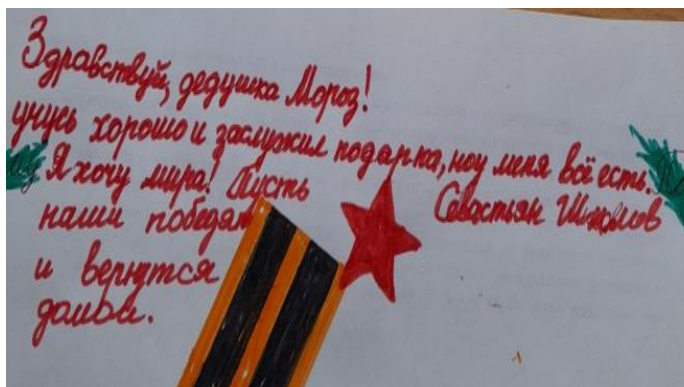 Здравствуй, дедушка Мороз!
учусь хорошо и заслужил подарка, но у меня всё есть.
Я хочу мира! Пусть
наши победят
и вернутся
домой.
Севастьян